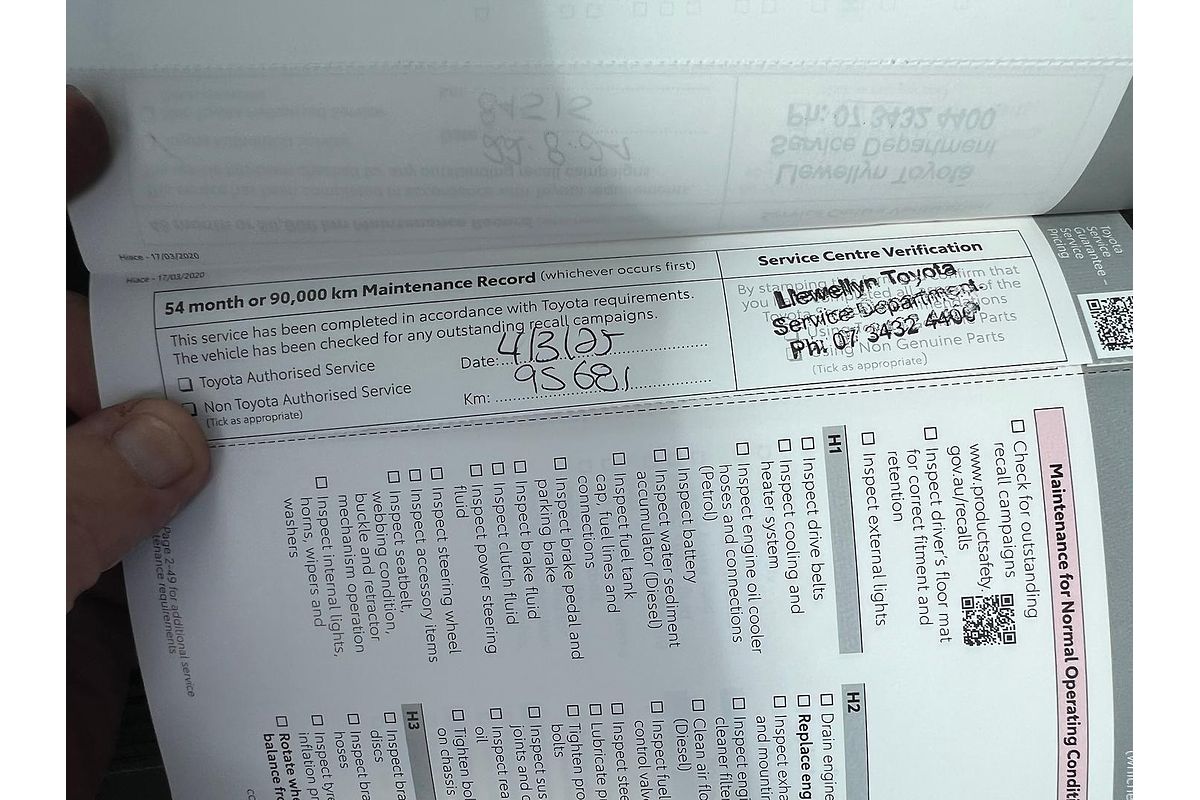 Hiace - 17/03/2020
Hiace - 17/03/2020
54 month or 90,000 km Maintenance Record (whichever occurs first)
This service has been completed in accordance with Toyota requirements.
The vehicle has been checked for any outstanding recall campaigns.
Toyota Authorised Service
Non Toyota Authorised Service
(Tick as appropriate)
Date: 4/3/25
Km: 95681
Service Centre Verification
By stamping
confirm that
you
of the
Llewellyn Toyota
Service Department.
Ph: 07 3432 4400
Parts
Using Non Genuine Parts
(Tick as appropriate)
Toyota
Service
Guarantee –
Service
Pricing
Maintenance for Normal Operating Condit
Check for outstanding
recall campaigns
www.productsafety.
gov.au/recalls
Inspect driver's floor mat
for correct fitment and
retention
Inspect external lights
H1
Inspect drive belts
Inspect cooling and
heater system
Inspect engine oil cooler
hoses and connections
(Petrol)
Inspect battery
Inspect water sediment
accumulator (Diesel)
Inspect fuel tank
cap, fuel lines and
connections
Inspect brake pedal and
parking brake
Inspect brake fluid
Inspect clutch fluid
Inspect power steering
fluid
Inspect steering wheel
Inspect accessory items
Inspect seatbelt,
webbing condition,
buckle and retractor
mechanism operation
Inspect internal lights,
horns, wipers and
washers
Page 2-49 for additional service
tenance requirements.
H2
Drain engine
Replace eng
Inspect exha
and mountin
Inspect engi
cleaner filter
Clean air flo
(Diesel)
Inspect fuel
control valv
Inspect stee
Lubricate p
Tighten pro
bolts
Inspect sus
joints and c
Inspect rea
oil
Tighten bol
on chassis
H3
Inspect bra
discs
Inspect bra
hoses
Inspect tyre
inflation pr
Rotate whe
balance fro